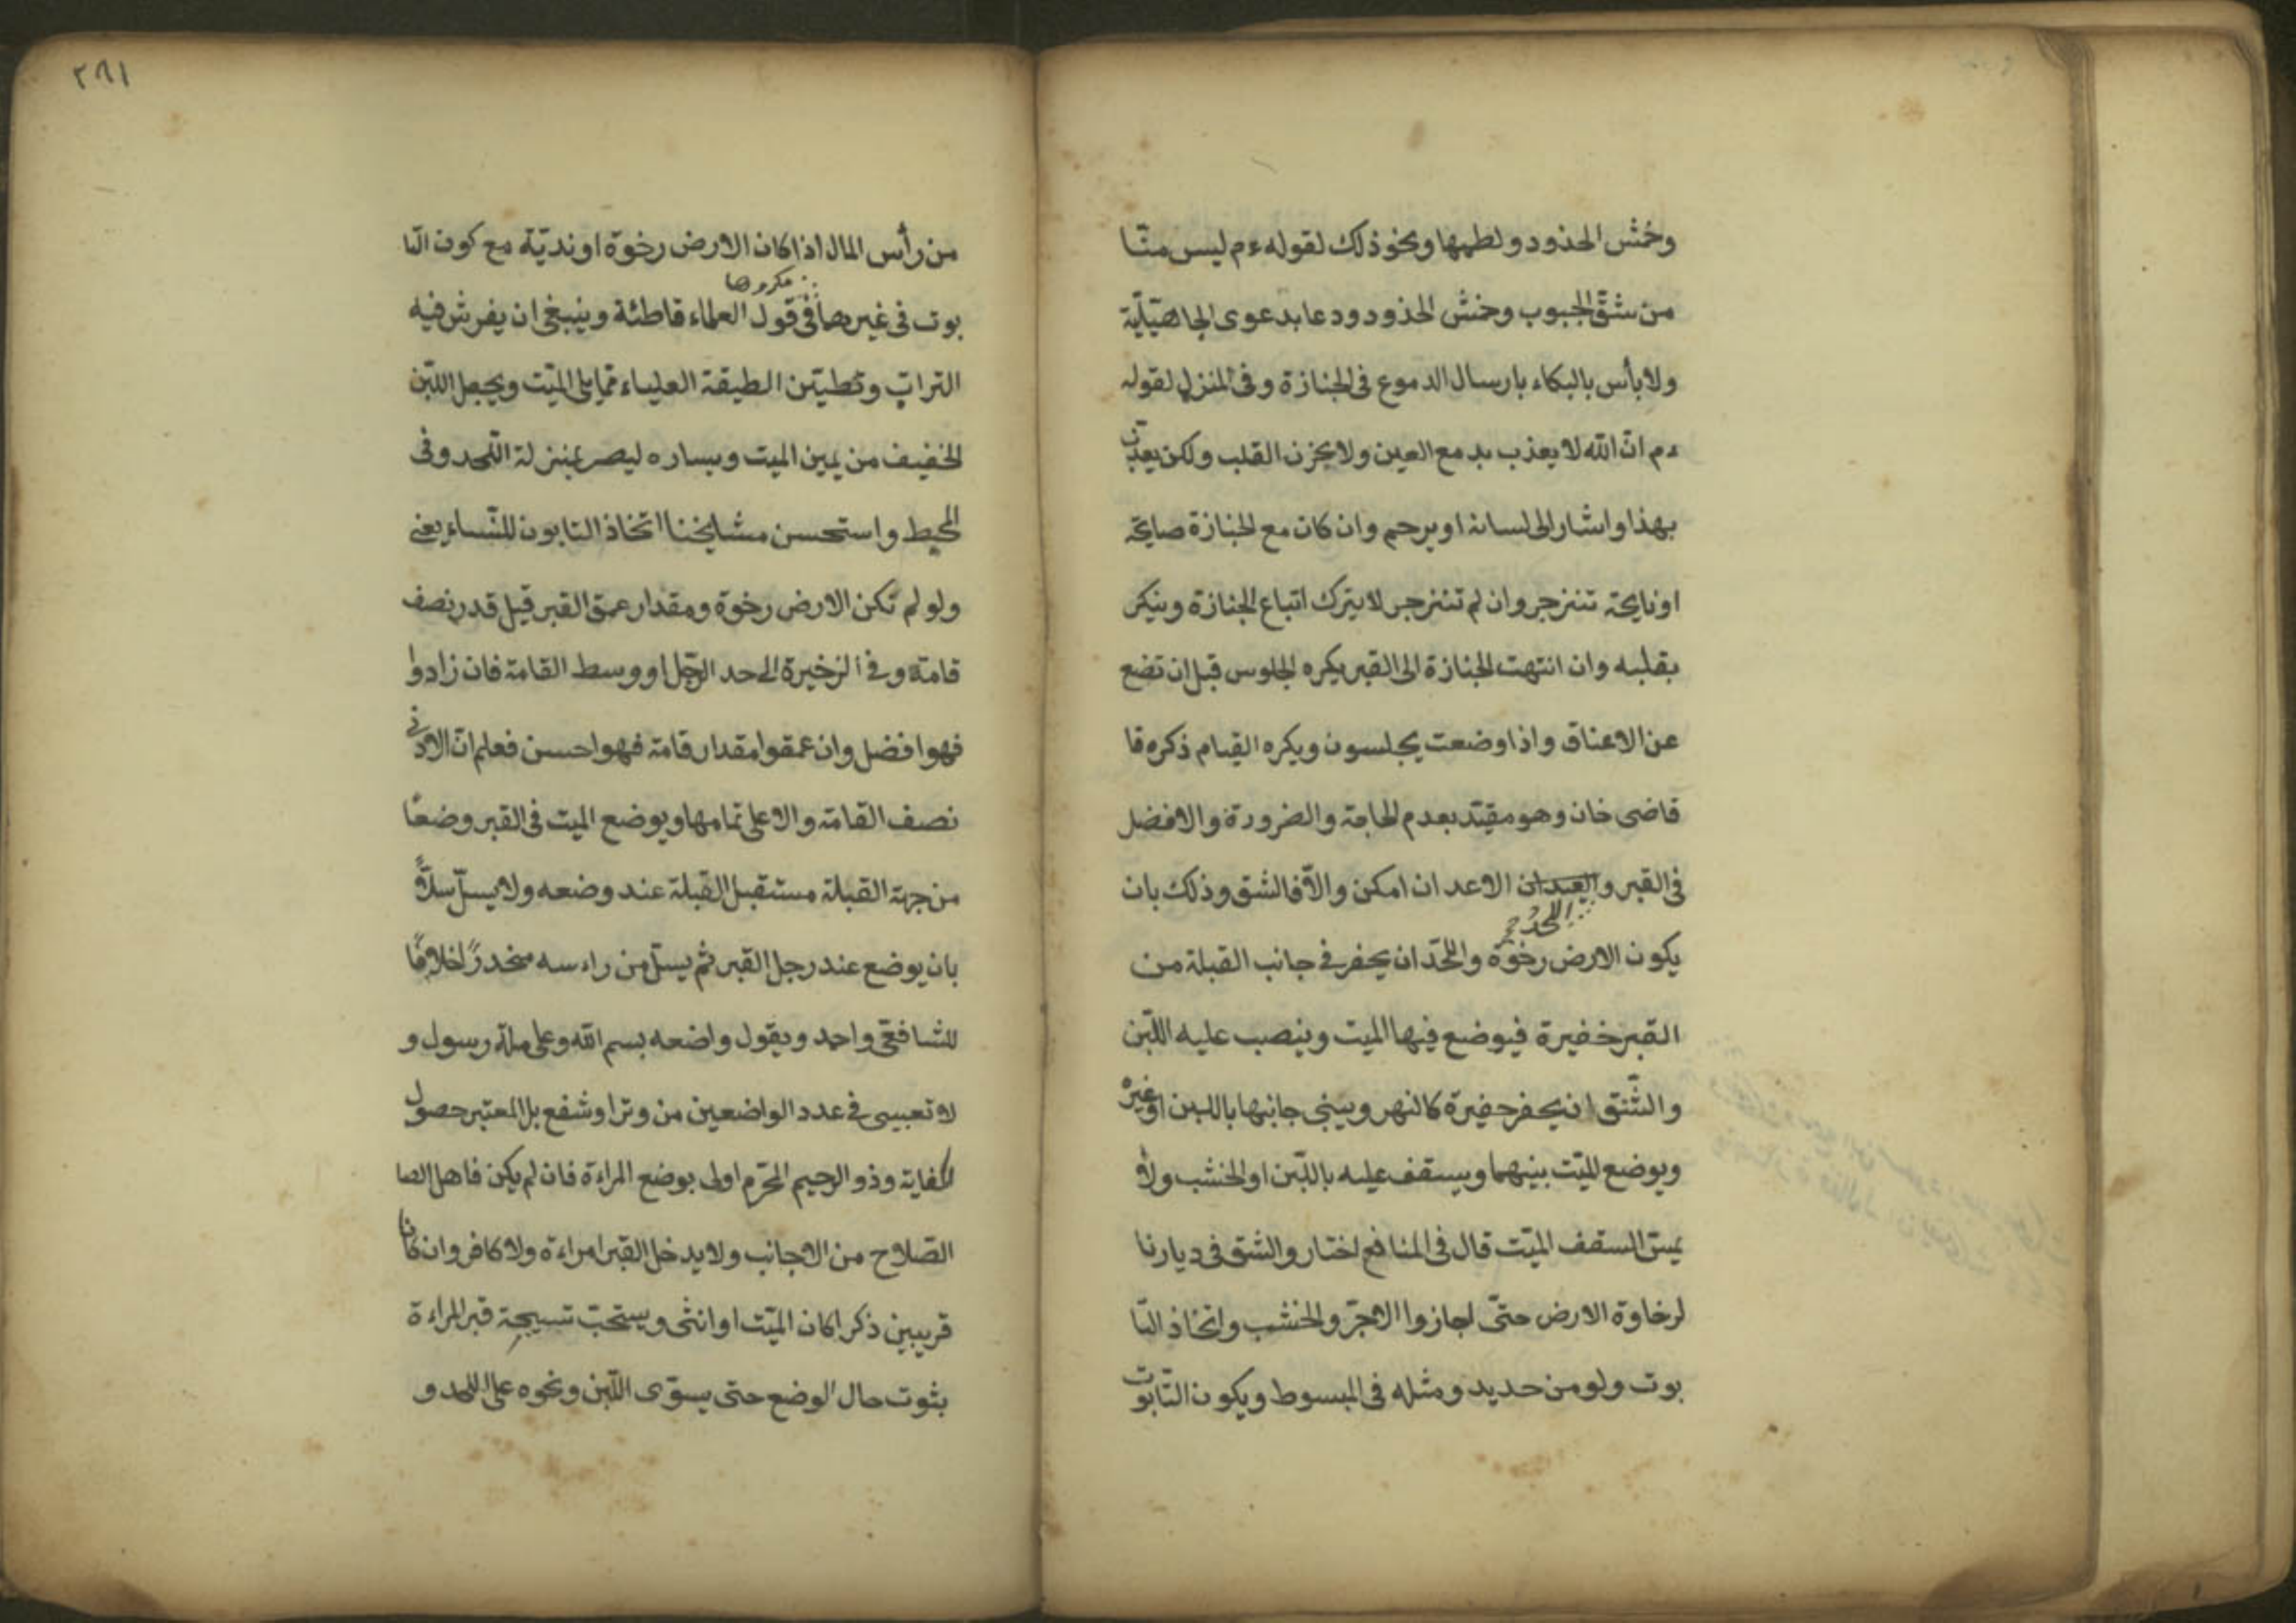 وخمش الخدود ولطمها ونحو ذلك لقوله ءم ليس منّا
من شقّ الجيوب وخمش الخدود ودعا بدعوى الجاهيّليّة
ولا بأس بالبكاء بارسال الدموع فى الجنازة وفى المنزل لقوله
ءم انّ الله لا يعذب بدمع العين ولا بحزن القلب ولكن يعذّب
بهذا واشار الى لسانه او يرحم وان كان مع الجنازة صايحة
او نايحة تنزجر وان لم تنزجر لا يترك اتباع الجنازة وينكر
بقلبه وان انتهت الجنازة الى القبر يكره الجلوس قبل ان تضع
عن الاعناق واذا وضعت يجلسون ويكره القيام ذكره قا
قاضى خان وهو مقيّد بعدم الحاجة والضرورة والافضل
فى القبر و الاعد ان امكن والاّ فالشق وذلك بان
اللحد
يكون الارض رخوة واللّحد ان يحفر فى جانب القبلة من
القبر خفيرة فيوضع فيها الميت وينصب عليه اللّبن
والشّق ان يحفر حفيرة كالنهر ويبنى جانبها باللبن او غيره
ويوضع الميّت بينهما ويسقف عليه باللّبن او الخشب ولا
يمسّ السقف الميّت قال فى المنافع اختار والشق فى ديارنا
لرخاوة الارض حتّى اجازوا الاجرّ والخشب واتخاذ التّا
بوت ولو من حديد ومثله فى المبسوط ويكون التّابوت
٢٨١
من رأس المال اذا كان الارض رخوة او نديّة مع كون التّا
مكروها
بوت فى غيرها فى قول العلماء قاطئة وينبغى ان يفرش فيه
التراب وتطيّن الطيقة العلياء ممّا يلى الميّت ويجعل اللّبن
الخفيف من يمين الميت ويساره ليصر بمنزلة اللّحد وفى
المحيط واستحسن مشايخنا اتخاذ التابون للنّساء يعنى
ولو لم تكن الارض رخوة ومقدار عمق القبر قيل قدر نصف
قامة وفى الزخيرة الى حد الرجّل او وسط القامة فان زادوا
فهو افضل وان عمقوا مقدار قامة فهو احسن فعلم انّ الادنى
نصف القامة والاعلى تمامها ويوضع الميت فى القبر وضعًا
من جهة القبلة مستقبل القبلة عند وضعه ولا يسلّ سلاًّ
بان يوضع عند رجل القبر ثم يسلّ من راء سه منحدرًا خلافًا
للشافعى واحمد ويقول واضعه بسم الله وعلى ملّة رسول و
لا تعبيى فى عدد الواضعين من وترا وشفع بل المعتبر حصول
الكفاية وذو الرحيم المحرّم اولى بوضع المراءة فان لم يكن فاهل الصا
الصّلاح من الاجانب ولا يدخل القبر امراءة ولا كافر وان كانا
قريبين ذكرا كان الميّت او انثى ويستحبّ تسيجة قبر المراءة
بثوت حال الوضع حتى يسوّى اللّبن ونحوه على اللحد و